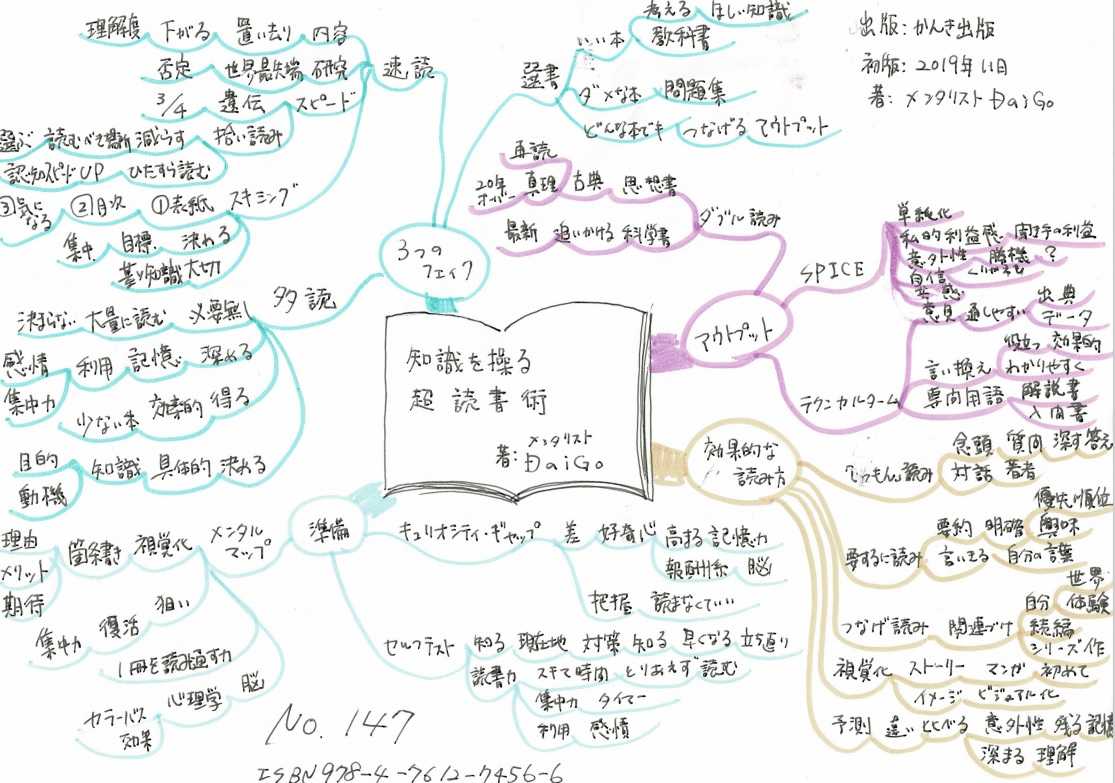 出版: かんき出版
初版: 2019年11日
著: メンタリスト DaiGo
知識を操る
超読書術
メンタリスト
著: DaiGo
3つの
フェイク
速読
内容 置い去り 下がる 理解度
研究 世界最先端 否定
スピード 遺伝 3/4
拾い読み 減らす 読むべき 選ぶ
ひたすら読む 認知スピードUP
スキミング
①表紙 ②目次 ③気になる
決める 目標 集中
基リ知識 大切
選書
いい本 教科書
考える ほしい知識
ダメな本 問題集
どんな本でも つなげる アウトプット
多読
必要無し 大量に読む 決まらない
深める 記憶 利用 感情
得る 効率的 少ない本 集中力
決める 具体的 知識 目的
動機
アウトプット
ダブル読み
思想書 古典 真理 20年オーバー
再読
科学書 追いかける 最新
SPICE
単純化
私的利益感 聞き手の利益
意外性 勝機 ?
自信
共感
意見 通しやすい 出典
データ
テクニカルターム
言い換え わかりやすく
役立つ 効果的
専門用語 解説書
入門書
効果的な
読み方
じゅもん読み
念頭 質問 深す 答え
対話 著者
要するに読み
要約 明確 興味
優先順位
言いきる 自分の言葉
つなげ読み 関連づけ 続編
自分 体験
世界
シリーズ作
視覚化 ストーリー マンガ 初めて
イメージ ビジュアル化
予測 違い とべる 意外性 残る 記憶
深まる 理解
準備
メンタル
マップ
視覚化 箇条書き 理由
メリット
期待
狙い 復活 集中力
1冊を読み通す力
脳 心理学 セラーバス
効果
キュリオシティ・ギャップ 差 好奇心 高まる 記憶力
報酬系 脳
把握 読まなくていい
セルフテスト 知る 現在地 対策 知る 早くなる 立ち返り
読書力 すきて時間 とりあえず 読む
集中力 タイマー
利用 感情
No. 147
ISBN978-4-7612-7456-6